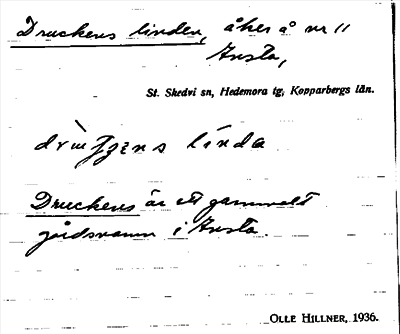 Druckens linden, åker å nr 11
Arsta,
St. Skedvi sn, Hedemora tg, Kopparbergs län.
linda
Druckens är ett gammalt
gårdsnamn i Arsta.
OLLE HILLNER, 1936.